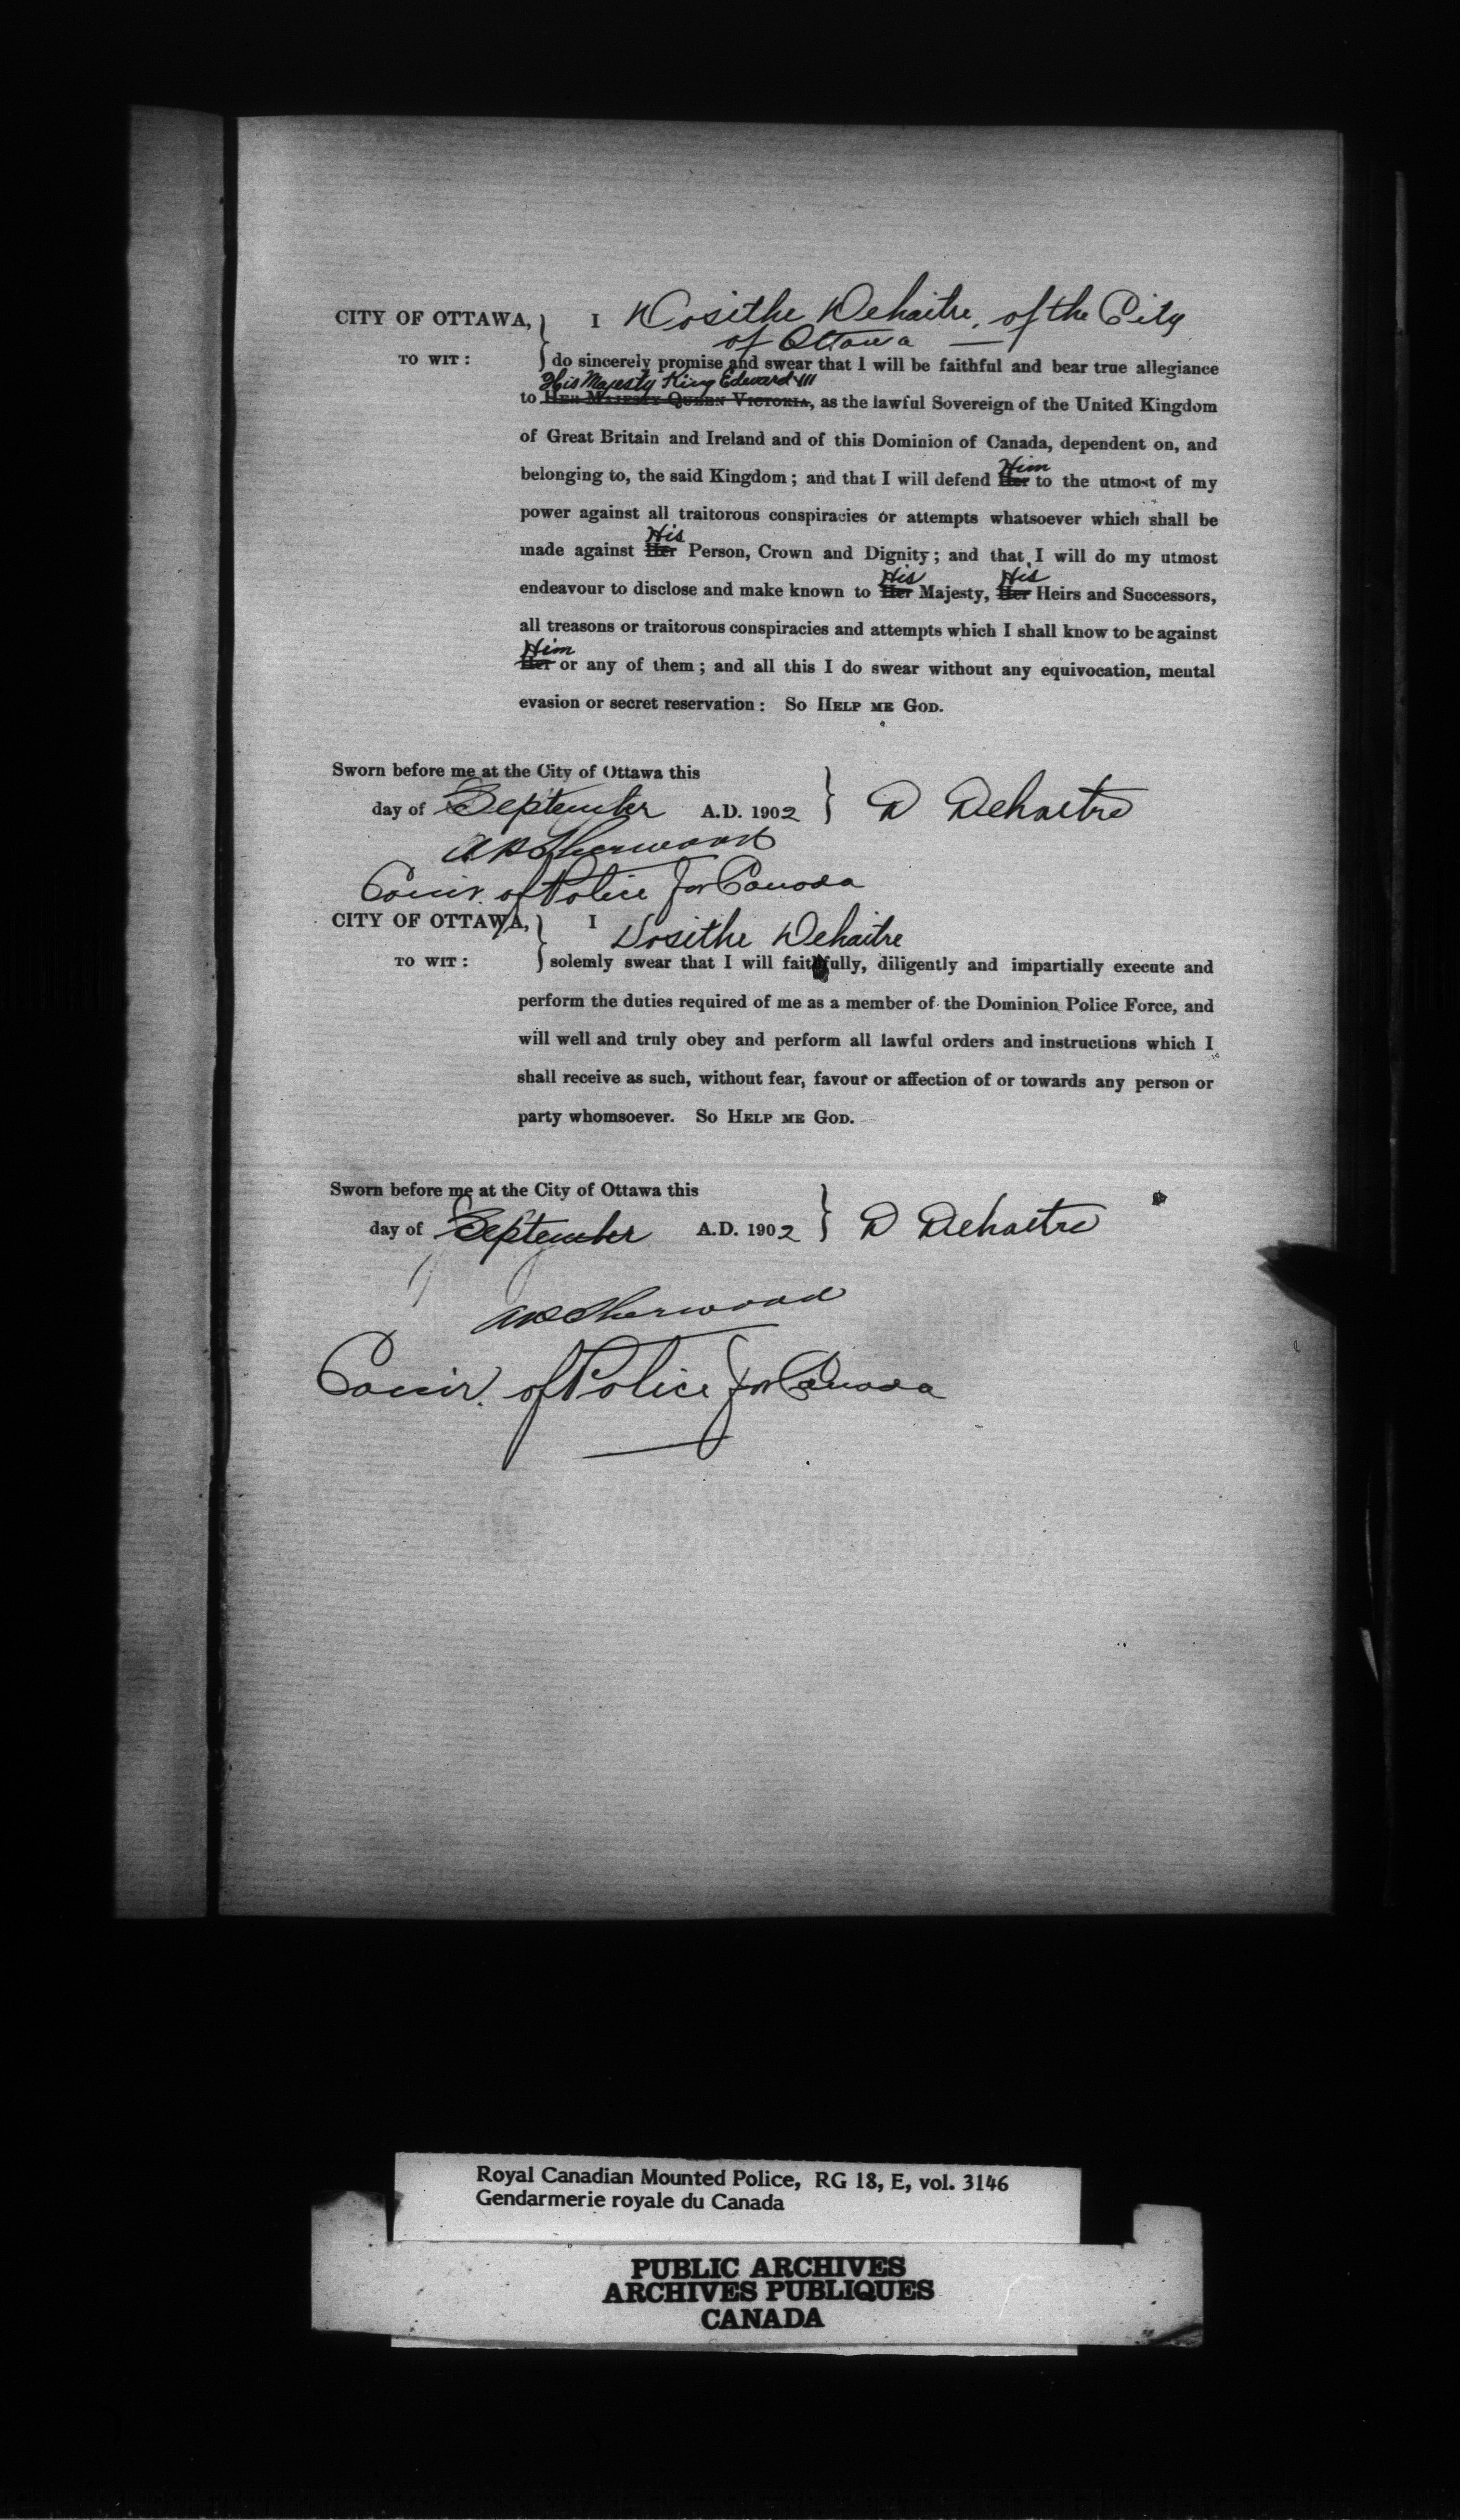 CITY OF OTTAWA, } I Dosithe Dehaitre, of the City
of Ottawa —
TO WIT: } do sincerely promise and swear that I will be faithful and bear true allegiance
His Majesty King Edward VII
to HER MAJESTY QUEEN VICTORIA, as the lawful Sovereign of the United Kingdom
of Great Britain and Ireland and of this Dominion of Canada, dependent on, and
Him
belonging to, the said Kingdom; and that I will defend Her to the utmost of my
power against all traitorous conspiracies or attempts whatsoever which shall be
His
made against Her Person, Crown and Dignity; and that I will do my utmost
His His
endeavour to disclose and make known to Her Majesty, Her Heirs and Successors,
all treasons or traitorous conspiracies and attempts which I shall know to be against
Him
Her or any of them; and all this I do swear without any equivocation, mental
evasion or secret reservation: So HELP ME GOD.
Sworn before me at the City of Ottawa this
day of September A.D. 1902 } D Dehaitre
AP Sherwood
Comr. of Police for Canada
CITY OF OTTAWA, } I Dosithe Dehaitre
TO WIT: } solemly swear that I will faithfully, diligently and impartially execute and
perform the duties required of me as a member of the Dominion Police Force, and
will well and truly obey and perform all lawful orders and instructions which I
shall receive as such, without fear, favour or affection of or towards any person or
party whomsoever. So HELP ME GOD.
Sworn before me at the City of Ottawa this
day of September A.D. 1902 } D Dehaitre
AP Sherwood
Comr. of Police for Canada
Royal Canadian Mounted Police, RG 18, E, vol. 3146
Gendarmerie royale du Canada
PUBLIC ARCHIVES
ARCHIVES PUBLIQUES
CANADA